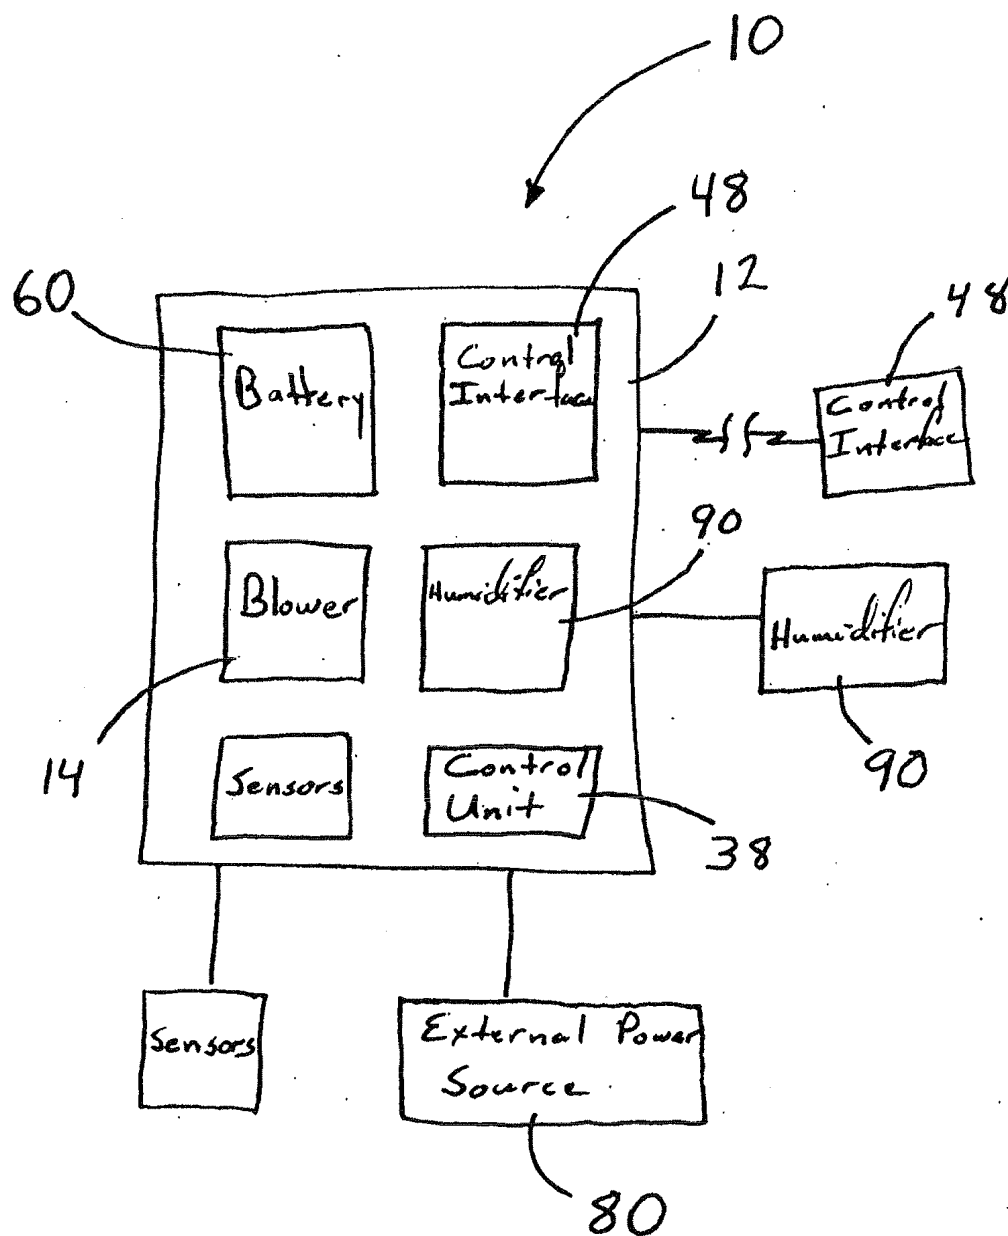 10
48
12
60
48
Battery
Control
Interface
Control
Interface
90
Blower
Humidifier
Humidifier
14
90
Sensors
Control
Unit
38
Sensors
External Power
Source
80